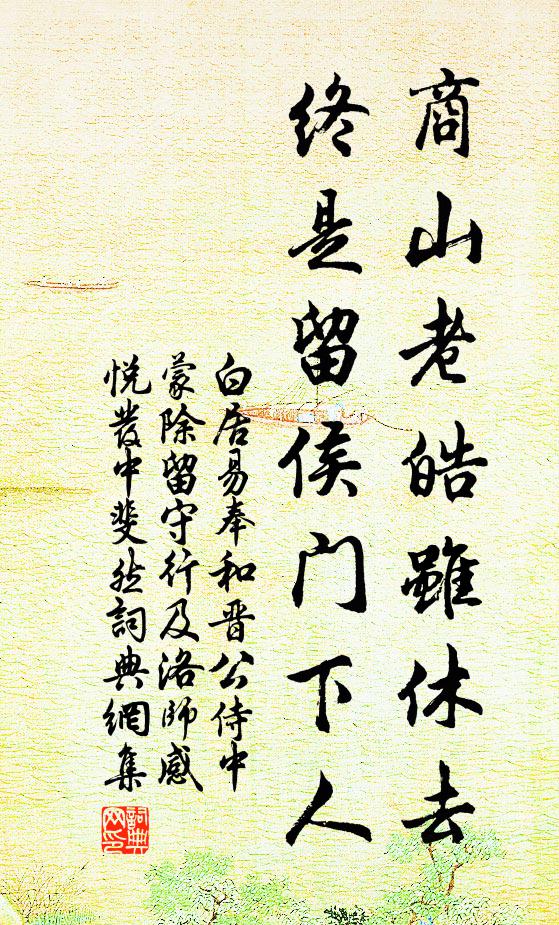 商山老皓雖休去
終是留侯门下人
白居易奉和晋公侍中
蒙除留守行及洛師感
悦發中斐然詞典網集
詞典
网印